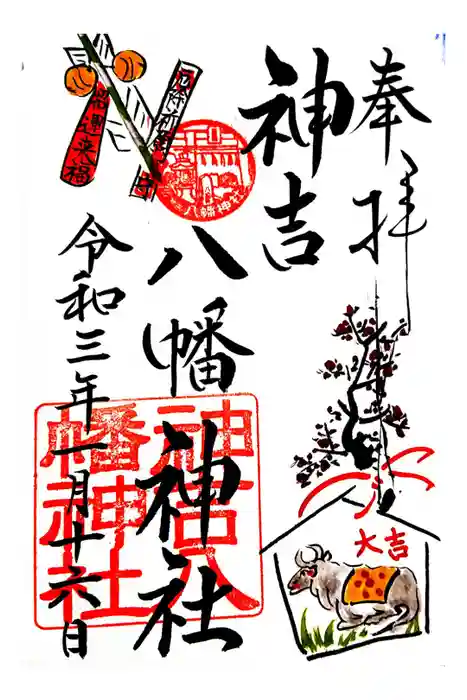 奉拝
神吉
八幡神社
令和三年一月十六日
神吉八
幡神社
大吉
八幡神社
開運来福